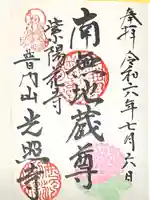 奉拝 令和六年七月六日
南無地蔵尊
紫陽花寺
普門山光照寺